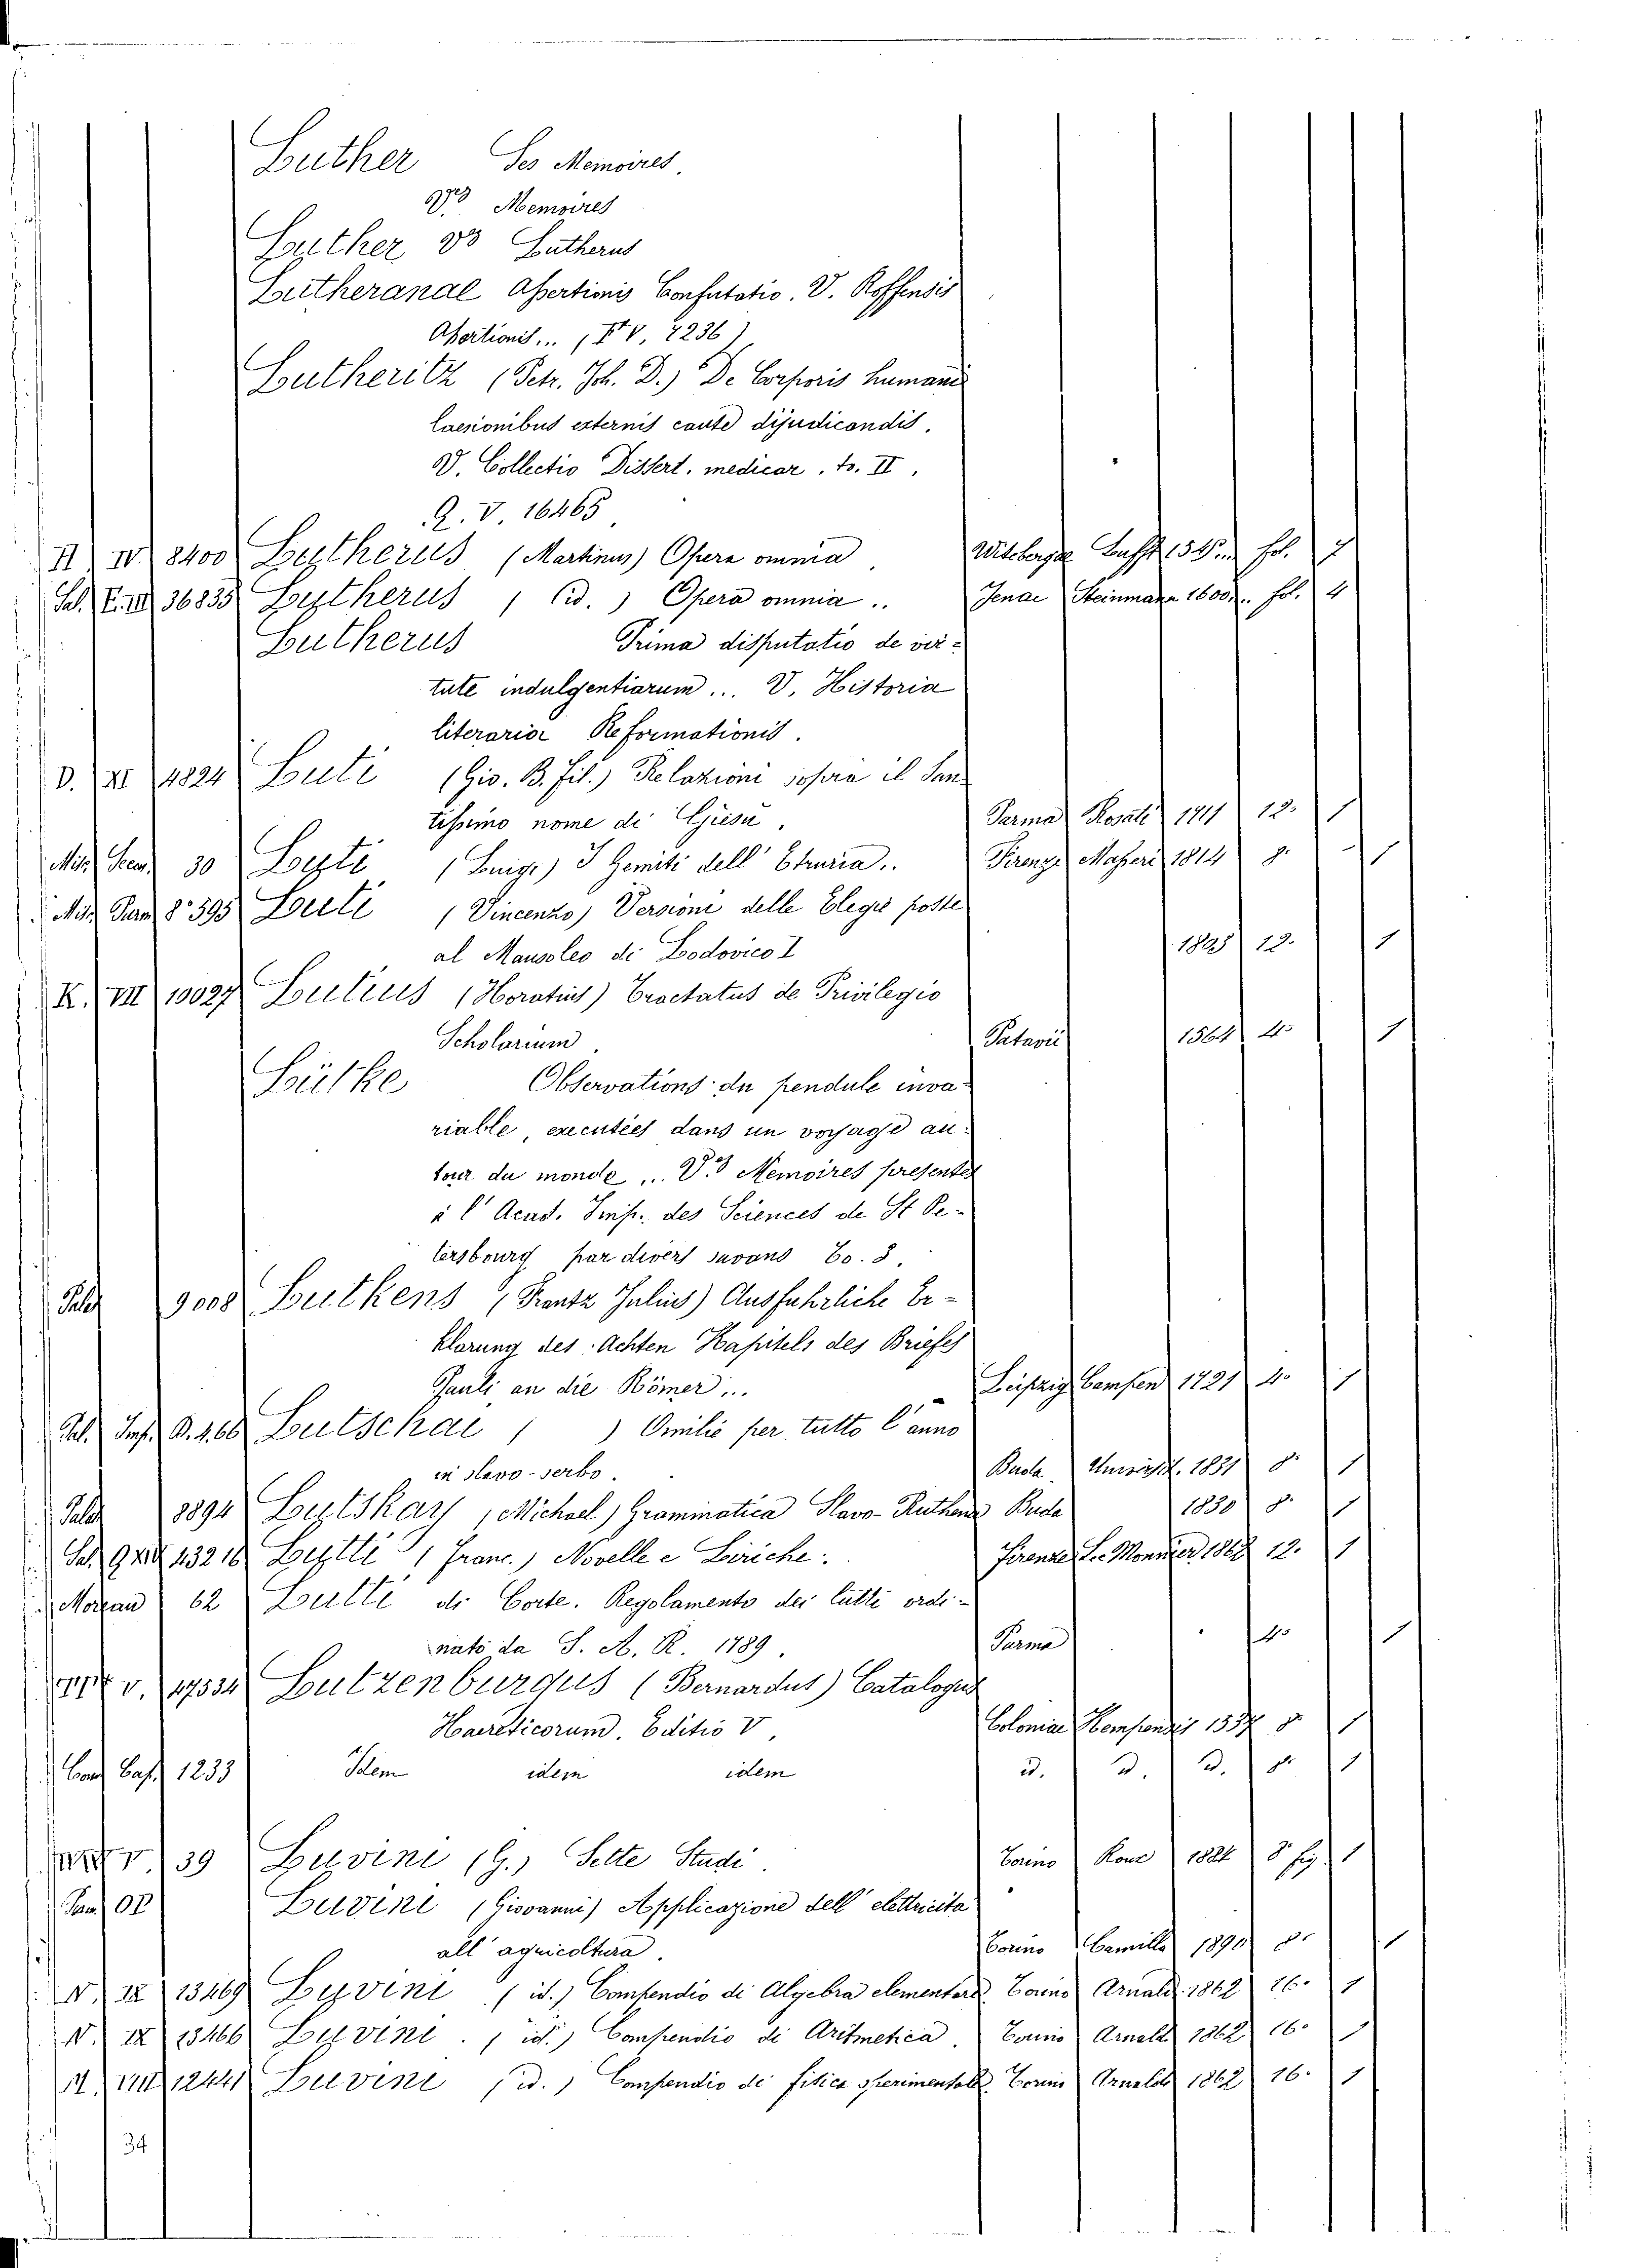 Luther Ses Memoires.
V.es Memoires
Luther V.s Lutherus
Lutheranae Assertionis Confutatio. V. Roffensis
Assertionis... ( V, 7236)
Lutheritz (Petr. Joh. D.) De Corporis humani
laesionibus externis caute dijudicandis.
V. Collectio Dissert. medicar. to. II,
Q. V. 16465
II IV. 8400 Lutherus (Martinus) Opera omnia Witebergae Lufft fol. 7
Sal. E. III 36835 Lutherus (id.) Opera omnia.. Jenae Steinmann 1600.. fol. 4
Lutherus Prima disputatio de vir-
tute indulgentiarum... V. Historia
literaria Reformationis.
D. XI 4824 Luti (Gio. B. fil.) Relazioni sopra il San
tissimo nome di Giesù. Parma Rosati 1711 12. 1
Mis. 30 Luti (Luigi) I Gemiti dell' Etruria.. Firenze Masseri 1814 8. 1
Mis. Parm. 8° 595 Luti (Vincenzo) Versione delle Elegie poste
al Mausoleo di Lodovico I 12. 1
K. VII 10027 Lutius (Horatius) Tractatus de Privilegio
Scholarium Patavii 1564 4. 1
Lütke Observations du pendule inva-
riable, executées dans un voyage au-
tour du monde... V.s Memoires presentés
à l'Acad. Imp. des Sciences de St Pe-
tersbourg par divers savans To. 3.
Palat 9008 Lutkens (Frantz Julius) Ausfuhrliche Er-
klarung des Achten Kapitels des Briefes
Pauli an die Römer... Leipzig Campen 1721 4. 1
Pal. Imp. D. 466 Lutschai ( ) Omilie per tutto l'anno
in slavo-serbo. Buda Universit. 1831 8. 1
Palat 8894 Lutskay (Michael) Grammatica Slavo-Ruthena Buda 1830 8. 1
Sal. 43216 Lutti (Franc.) Novelle e Liriche. Firenze Le Monnier 12. 1
Moreau 62 Lutti di Corte. Regolamento dei lutti ordi-
nato da S. A. R. 1789. Parma 4. 1
V. 17534 Lutzenburgus (Bernardus) Catalogus
Haereticorum. Editio V, Coloniae Kempensis 1537 8. 1
1233 Idem idem idem id. id. id. 8. 1
V. 39 Luvini (G.) Sette Studi. Torino Roux 1884 8° fig. 1
Luvini (Giovanni) Applicazione dell' elettricità
all' agricoltura. Torino Camilla 1890 8. 1
N. IX 13469 Luvini (id.) Compendio di Algebra elementare Torino Arnaldi 1862 16. 1
N. IX 13466 Luvini. (id.) Compendio di Aritmetica. Torino Arnaldi 1862 16. 1
12441 Luvini (id.) Compendio di fisica sperimentale Torino Arnaldi 1862 16. 1
34